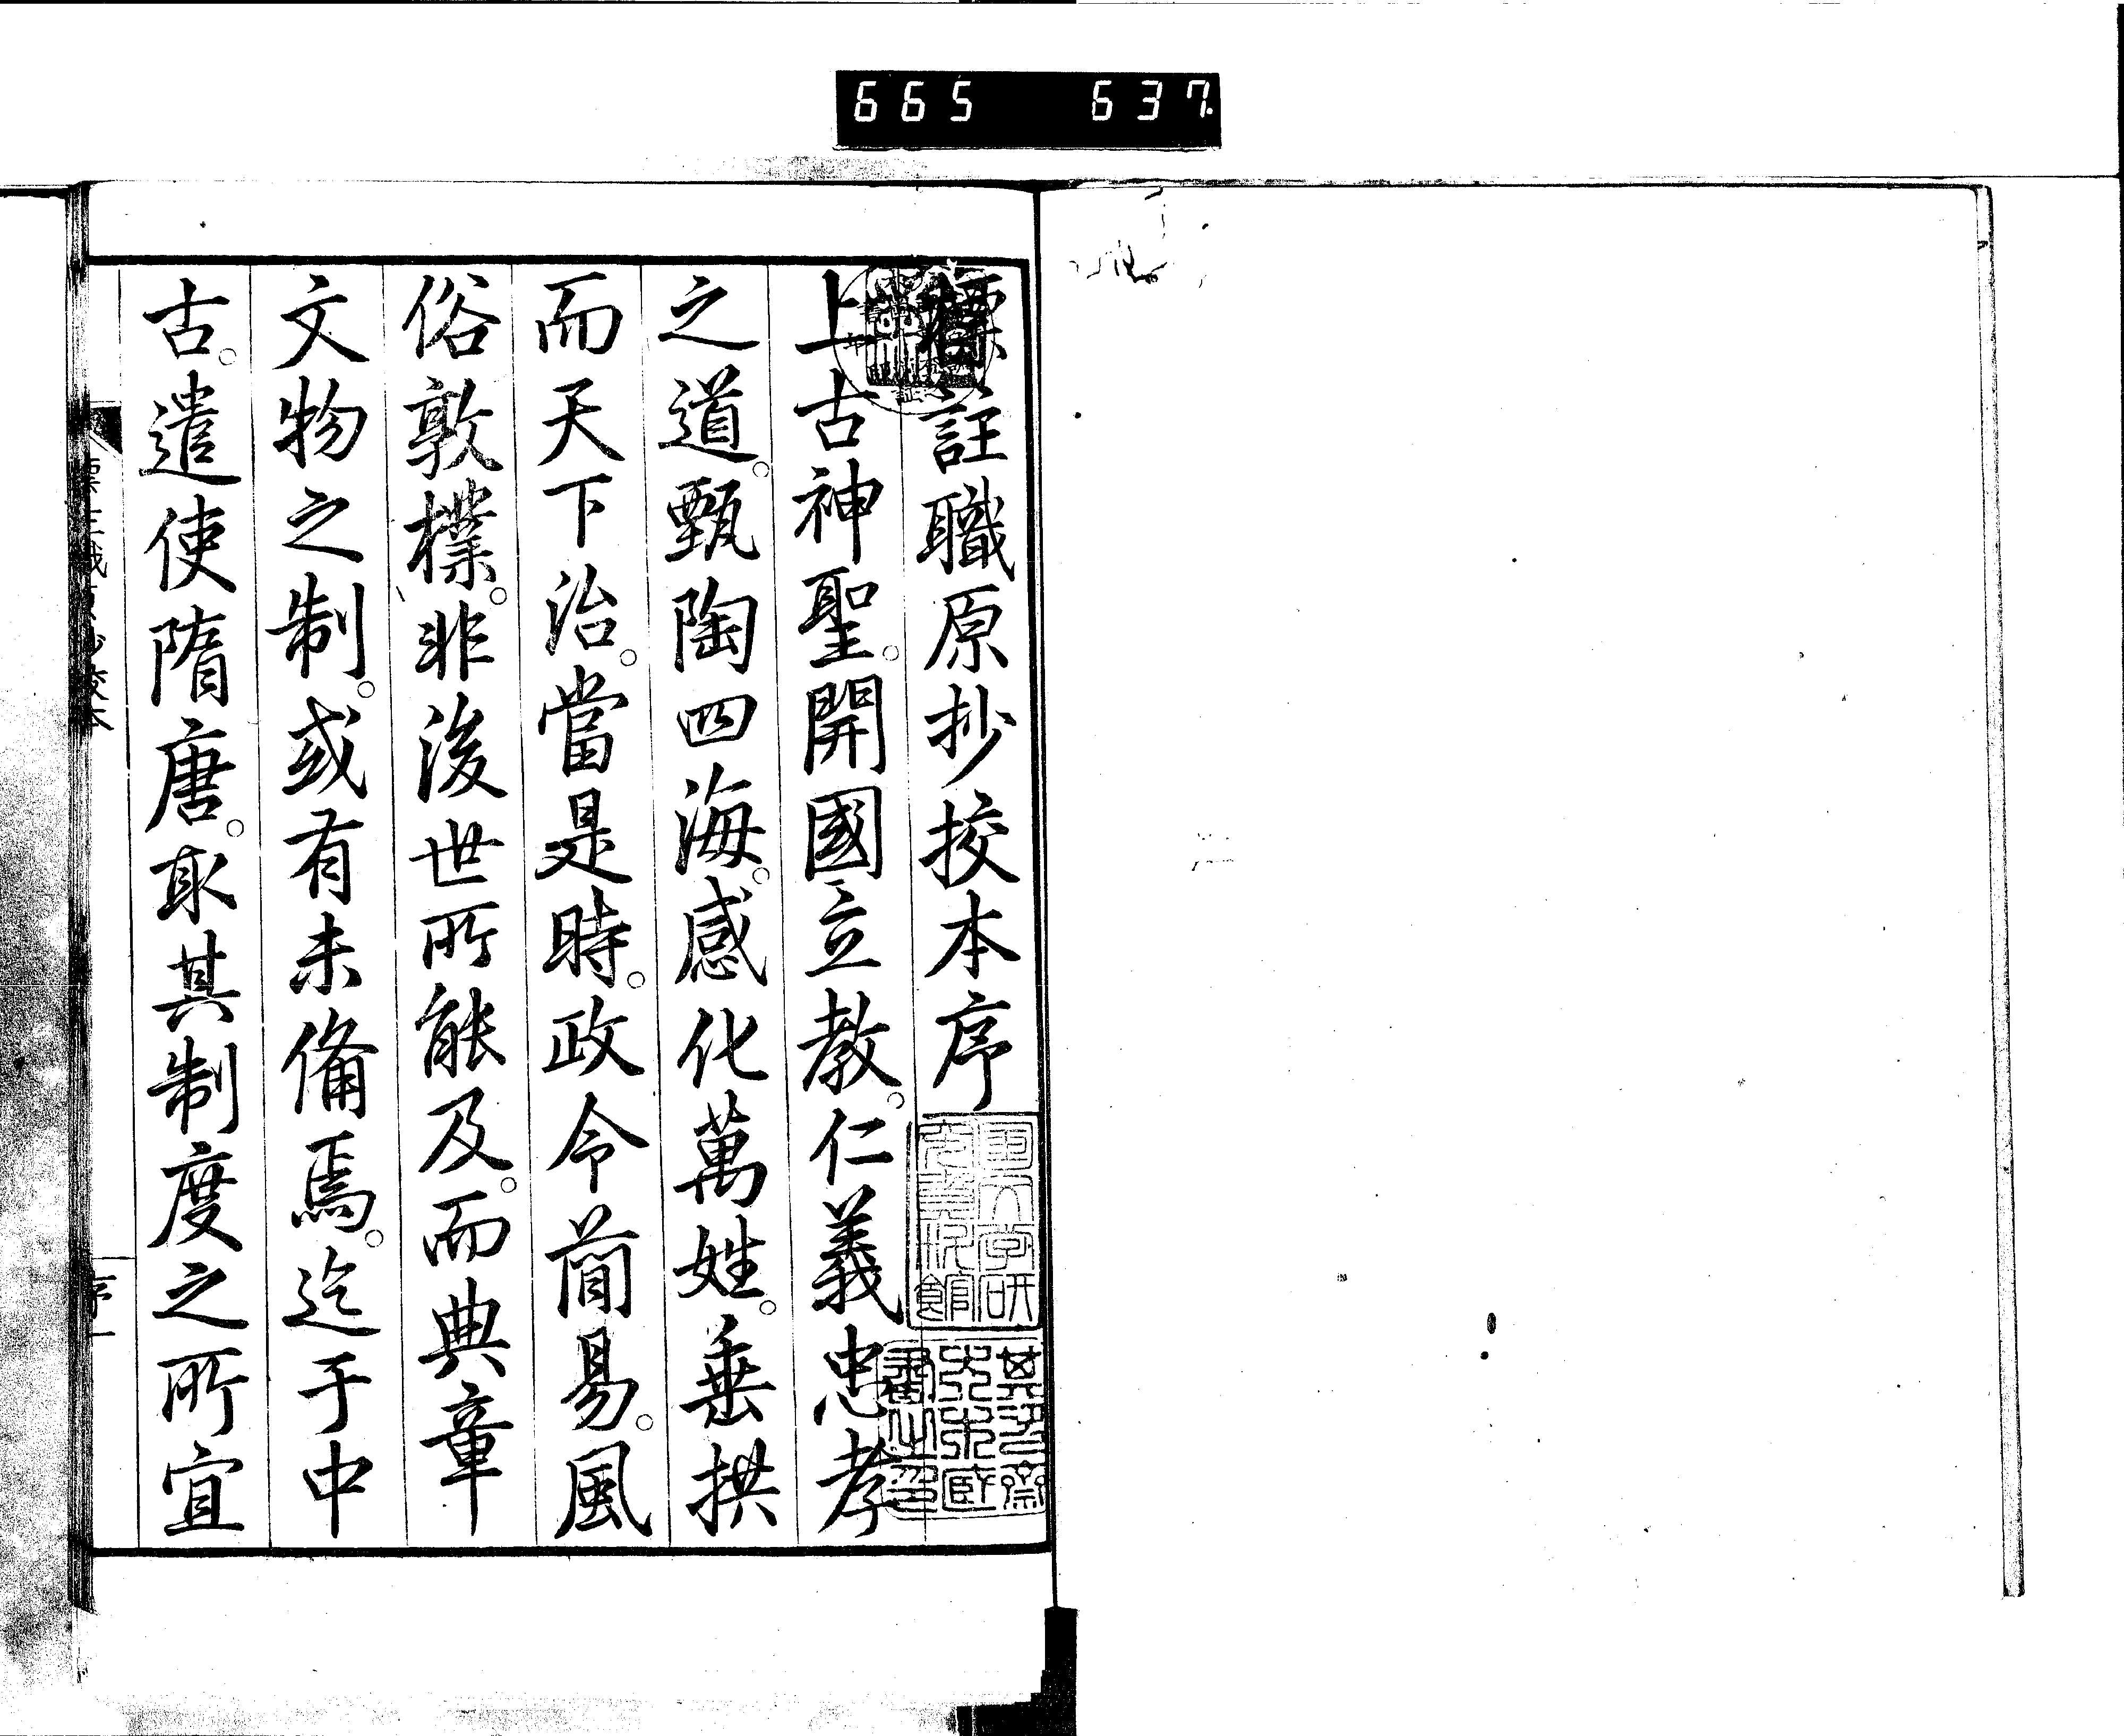 665 637
標註職原抄挍本序
上古神聖。開國立教。仁義忠孝
之道。甄陶四海。感化萬姓。垂拱
而天下治。當是時。政令簡易。風
俗敦樸。非後世所能及。而典章
文物之制。或有未備焉。迄于中
古。遣使隋唐。取其制度之所宜
序一